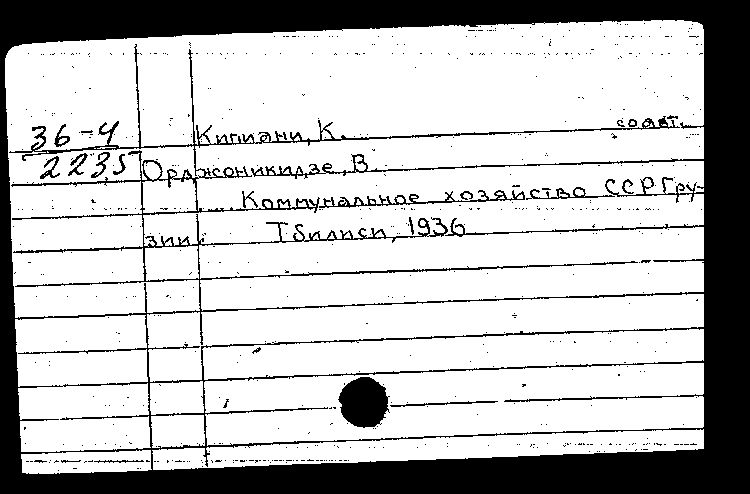 36-4 Кипиани, К. соавт.
2235 Орджоникидзе, В.
Коммунальное хозяйство ССР Гру-
зии. Тбилиси, 1936